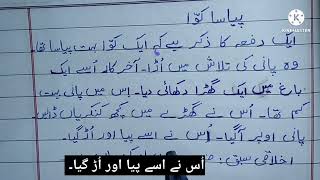 پیاسا کوّا
ایک دفعہ کا ذکر ہے کہ ایک کوّا بہت پیاسا تھا۔
وہ پانی کی تلاش میں اُڑا۔ آخرکار اُسے ایک
باغ میں ایک گھڑا دکھائی دیا۔ اِس میں پانی بہت
کم تھا۔ اُس نے گھڑے میں کچھ کنکریاں ڈالیں۔
پانی اوپر آگیا۔ اُس نے اسے پیا اور اُڑ گیا۔
اخلاقی سبق:
اُس نے اسے پیا اور اُڑ گیا۔
KINEMASTER